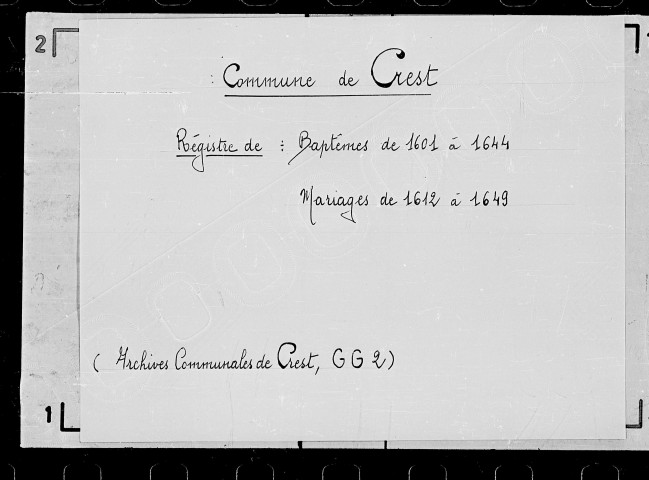 2
: Commune de Crest
Régistre de : Baptêmes de 1601 à 1644
Mariages de 1612 à 1649
( Archives Communales de Crest, GG 2)
1